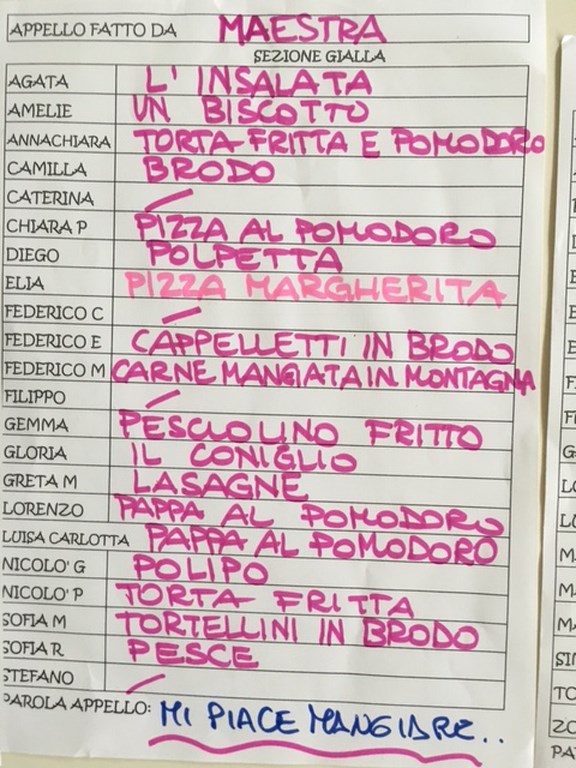 APPELLO FATTO DA MAESTRA
SEZIONE GIALLA
AGATA L'INSALATA
AMELIE UN BISCOTTO
ANNACHIARA TORTA FRITTA E POMODORO
CAMILLA BRODO
CATERINA /
CHIARA P PIZZA AL POMODORO
DIEGO POLPETTA
ELIA PIZZA MARGHERITA
FEDERICO C /
FEDERICO E CAPPELLETTI IN BRODO
FEDERICO M CARNE MANGIATA IN MONTAGNA
FILIPPO /
GEMMA PESCIOLINO FRITTO
GLORIA IL CONIGLIO
GRETA M LASAGNE
LORENZO PAPPA AL POMODORO
LUISA CARLOTTA PAPPA AL POMODORO
NICOLO' G POLIPO
NICOLO' P TORTA FRITTA
SOFIA M TORTELLINI IN BRODO
SOFIA R PESCE
STEFANO /
PAROLA APPELLO: MI PIACE MANGIARE..